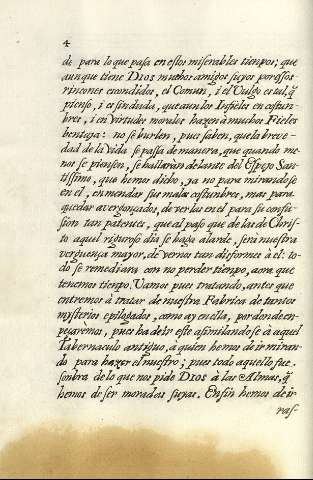 4
de para lo que pasa en estos miserables tiempos; que
aunque tiene DIOS muchos amigos suyos por essos
rincones escondidos, el Comun, i el Vulgo es tal, q̃
pienso, i es sin duda, que aun los Infieles en costum-
bres, i en virtudes morales hazen à muchos Fieles
ventaja: no se burlen, pues saben, que la breve-
dad de la Vida se passa de manera, que quando me-
nos se piensen, se hallaràn delante del Espejo San-
tissimo, que hemos dicho, ya no para mirandose
en el, enmendar sus malas costumbres, mas para
quedar avergonçados, de verlas en el para su confu-
sion tan patentes, que al paso que de las de Chris-
to aquel riguroso dia se haga alarde, serà nuestra
verguença mayor, de vernos tan disforme à el: to-
do se remediarà con no perder tiempo, aora que
tenemos tiempo. Vamos pues tratando, antes que
entremos à tratar de nuestra Fabrica de tantos
mysterios epilogados, como ay en ella, por donde em-
peçaremos, pues ha de ir este asimilandose à aquel
Tabernaculo antiguo, à quien hemos de ir miran-
do para hazer el nuestro; pues todo aquello fue
sombra de lo que nos pide DIOS à las Almas, q̃
hemos de ser moradas suyas. En fin hemos de ir
ras-